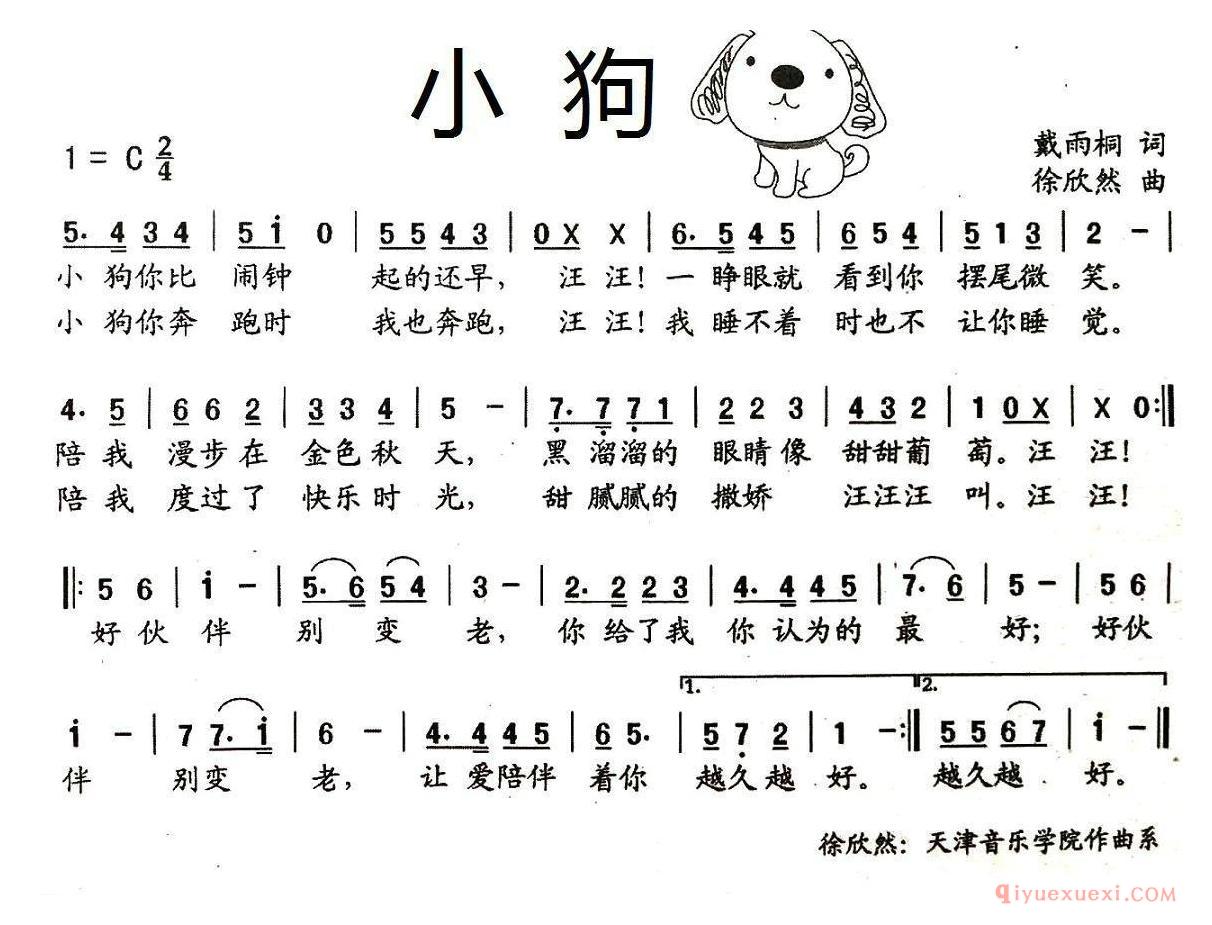 小 狗
1 = C 2/4
戴雨桐 词
徐欣然 曲
5. 4 3 4 | 5 i 0 | 5 5 4 3 | 0 X X | 6. 5 4 5 | 6 5 4 | 5 1 3 | 2 - |
小 狗你比 闹钟 起的还早, 汪 汪! 一 睁眼就 看到你 摆尾微 笑。
小 狗你奔 跑时 我也奔跑, 汪 汪! 我 睡不着 时也不 让你睡 觉。
4. 5 | 6 6 2 | 3 3 4 | 5 - | 7. 7 7 1 | 2 2 3 | 4 3 2 | 1 0 X | X 0 :||
陪 我 漫步在 金色秋 天, 黑 溜溜的 眼睛像 甜甜葡 萄。汪 汪!
陪 我 度过了 快乐时 光, 甜 腻腻的 撒娇 汪汪汪 叫。汪 汪!
||: 5 6 | i - | 5. 6 5 4 | 3 - | 2. 2 2 3 | 4. 4 4 5 | 7. 6 | 5 - | 5 6 |
好 伙 伴 别 变 老, 你 给了我 你 认为的 最 好; 好伙
1. 2.
i - | 7 7. i | 6 - | 4. 4 4 5 | 6 5. | 5 7 2 | 1 - :|| 5 5 6 7 | i - ||
伴 别变 老, 让 爱陪伴 着你 越久越 好。 越久越 好。
徐欣然: 天津音乐学院作曲系
qiyuexuexi.COM